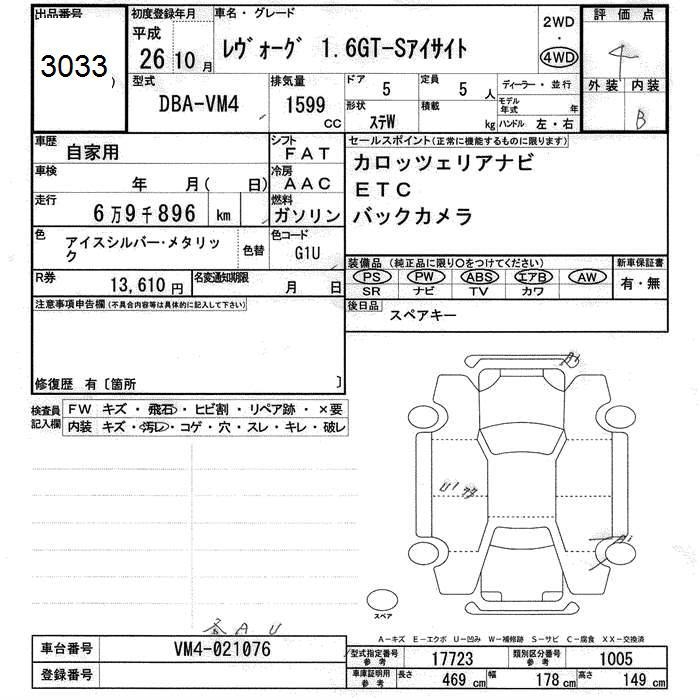 出品番号
3033
初度登録年月
平成
26 10月
車名・グレード
レヴォーグ 1.6GT-Sアイサイト
2WD
・
4WD
評価点
4
外装 内装
B
型式
DBA-VM4
排気量
1599 CC
ドア
5
定員
5 人
形状
ステW
積載
kg
ディーラー・並行
モデル年式 年
ハンドル 左・右
車歴
自家用
シフト
FAT
車検
年 月( 日)
冷房
AAC
走行
6万9千896 km
燃料
ガソリン
色
アイスシルバー・メタリック
色替
色コード
G1U
R券
13,610円
名変通知期限
月 日
セールスポイント(正常に機能するものに限ります)
カロッツェリアナビ
ETC
バックカメラ
装備品 (純正品に限り○をつけてください)
PS PW ABS エアB AW
SR ナビ TV カワ
新車保証書
有・無
後日品
スペアキー
注意事項申告欄(不具合内容等は具体的に記入して下さい)
修復歴 有〔箇所 〕
検査員記入欄
FW キズ・飛石・ヒビ割・リペア跡・×要
内装 キズ・汚レ・コゲ・穴・スレ・キレ・破レ
U1
スペア
A U
A-キズ E-エクボ U-凹み W-補修跡 S-サビ C-腐食 XX-交換済
車台番号
VM4-021076
登録番号
型式指定番号 参考
17723
類別区分番号 参考
1005
車庫証明用 参考
長さ 469 cm 幅 178 cm 高さ 149 cm